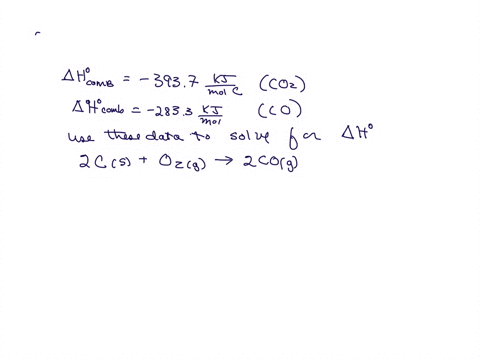 ΔH°comb = -393.7 KJ/mol C (CO2)
ΔH°comb = -283.3 KJ/mol (CO)
use these data to solve for ΔH°
2C(s) + O2(g) → 2CO(g)